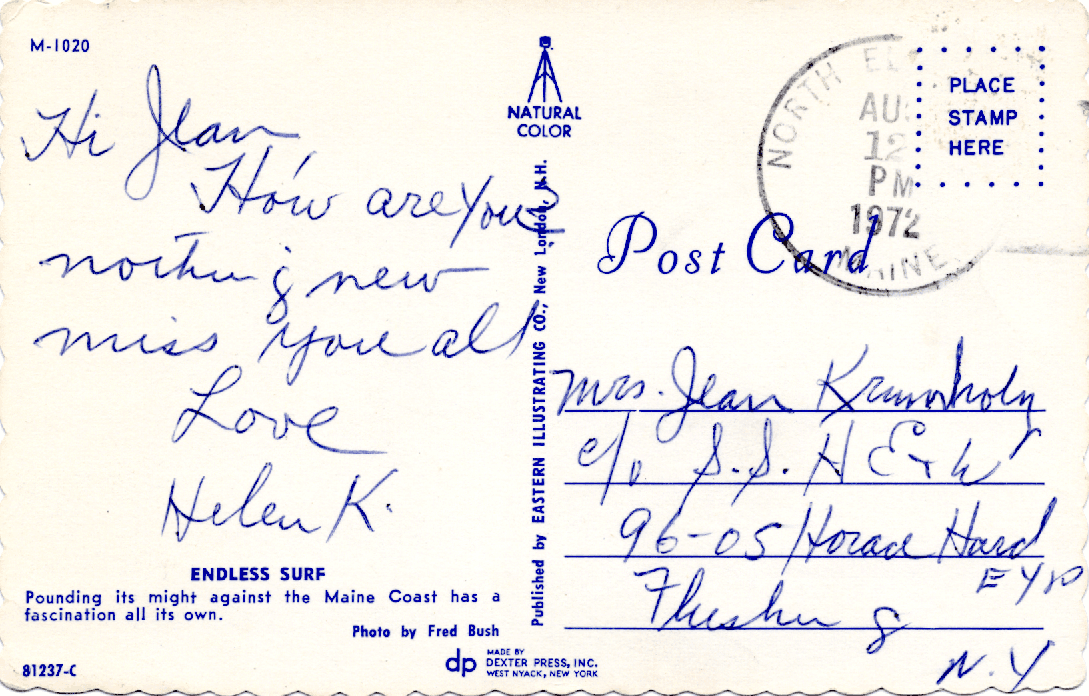 M-1020
Hi Jean
How are you?
nothing new
miss you all
Love
Helen K.
ENDLESS SURF
Pounding its might against the Maine Coast has a
fascination all its own.
Photo by Fred Bush
81237-C
NATURAL
COLOR
Published by EASTERN ILLUSTRATING CO., New London, N.H.
dp MADE BY
DEXTER PRESS, INC.
WEST NYACK, NEW YORK
NORTH
AUG
12
PM
1972
MAINE
PLACE
STAMP
HERE
Post Card
Mrs. Jean Krumholz
c/o S.S. H
96-05 Horace Hard
Exp
Flushing
N.Y